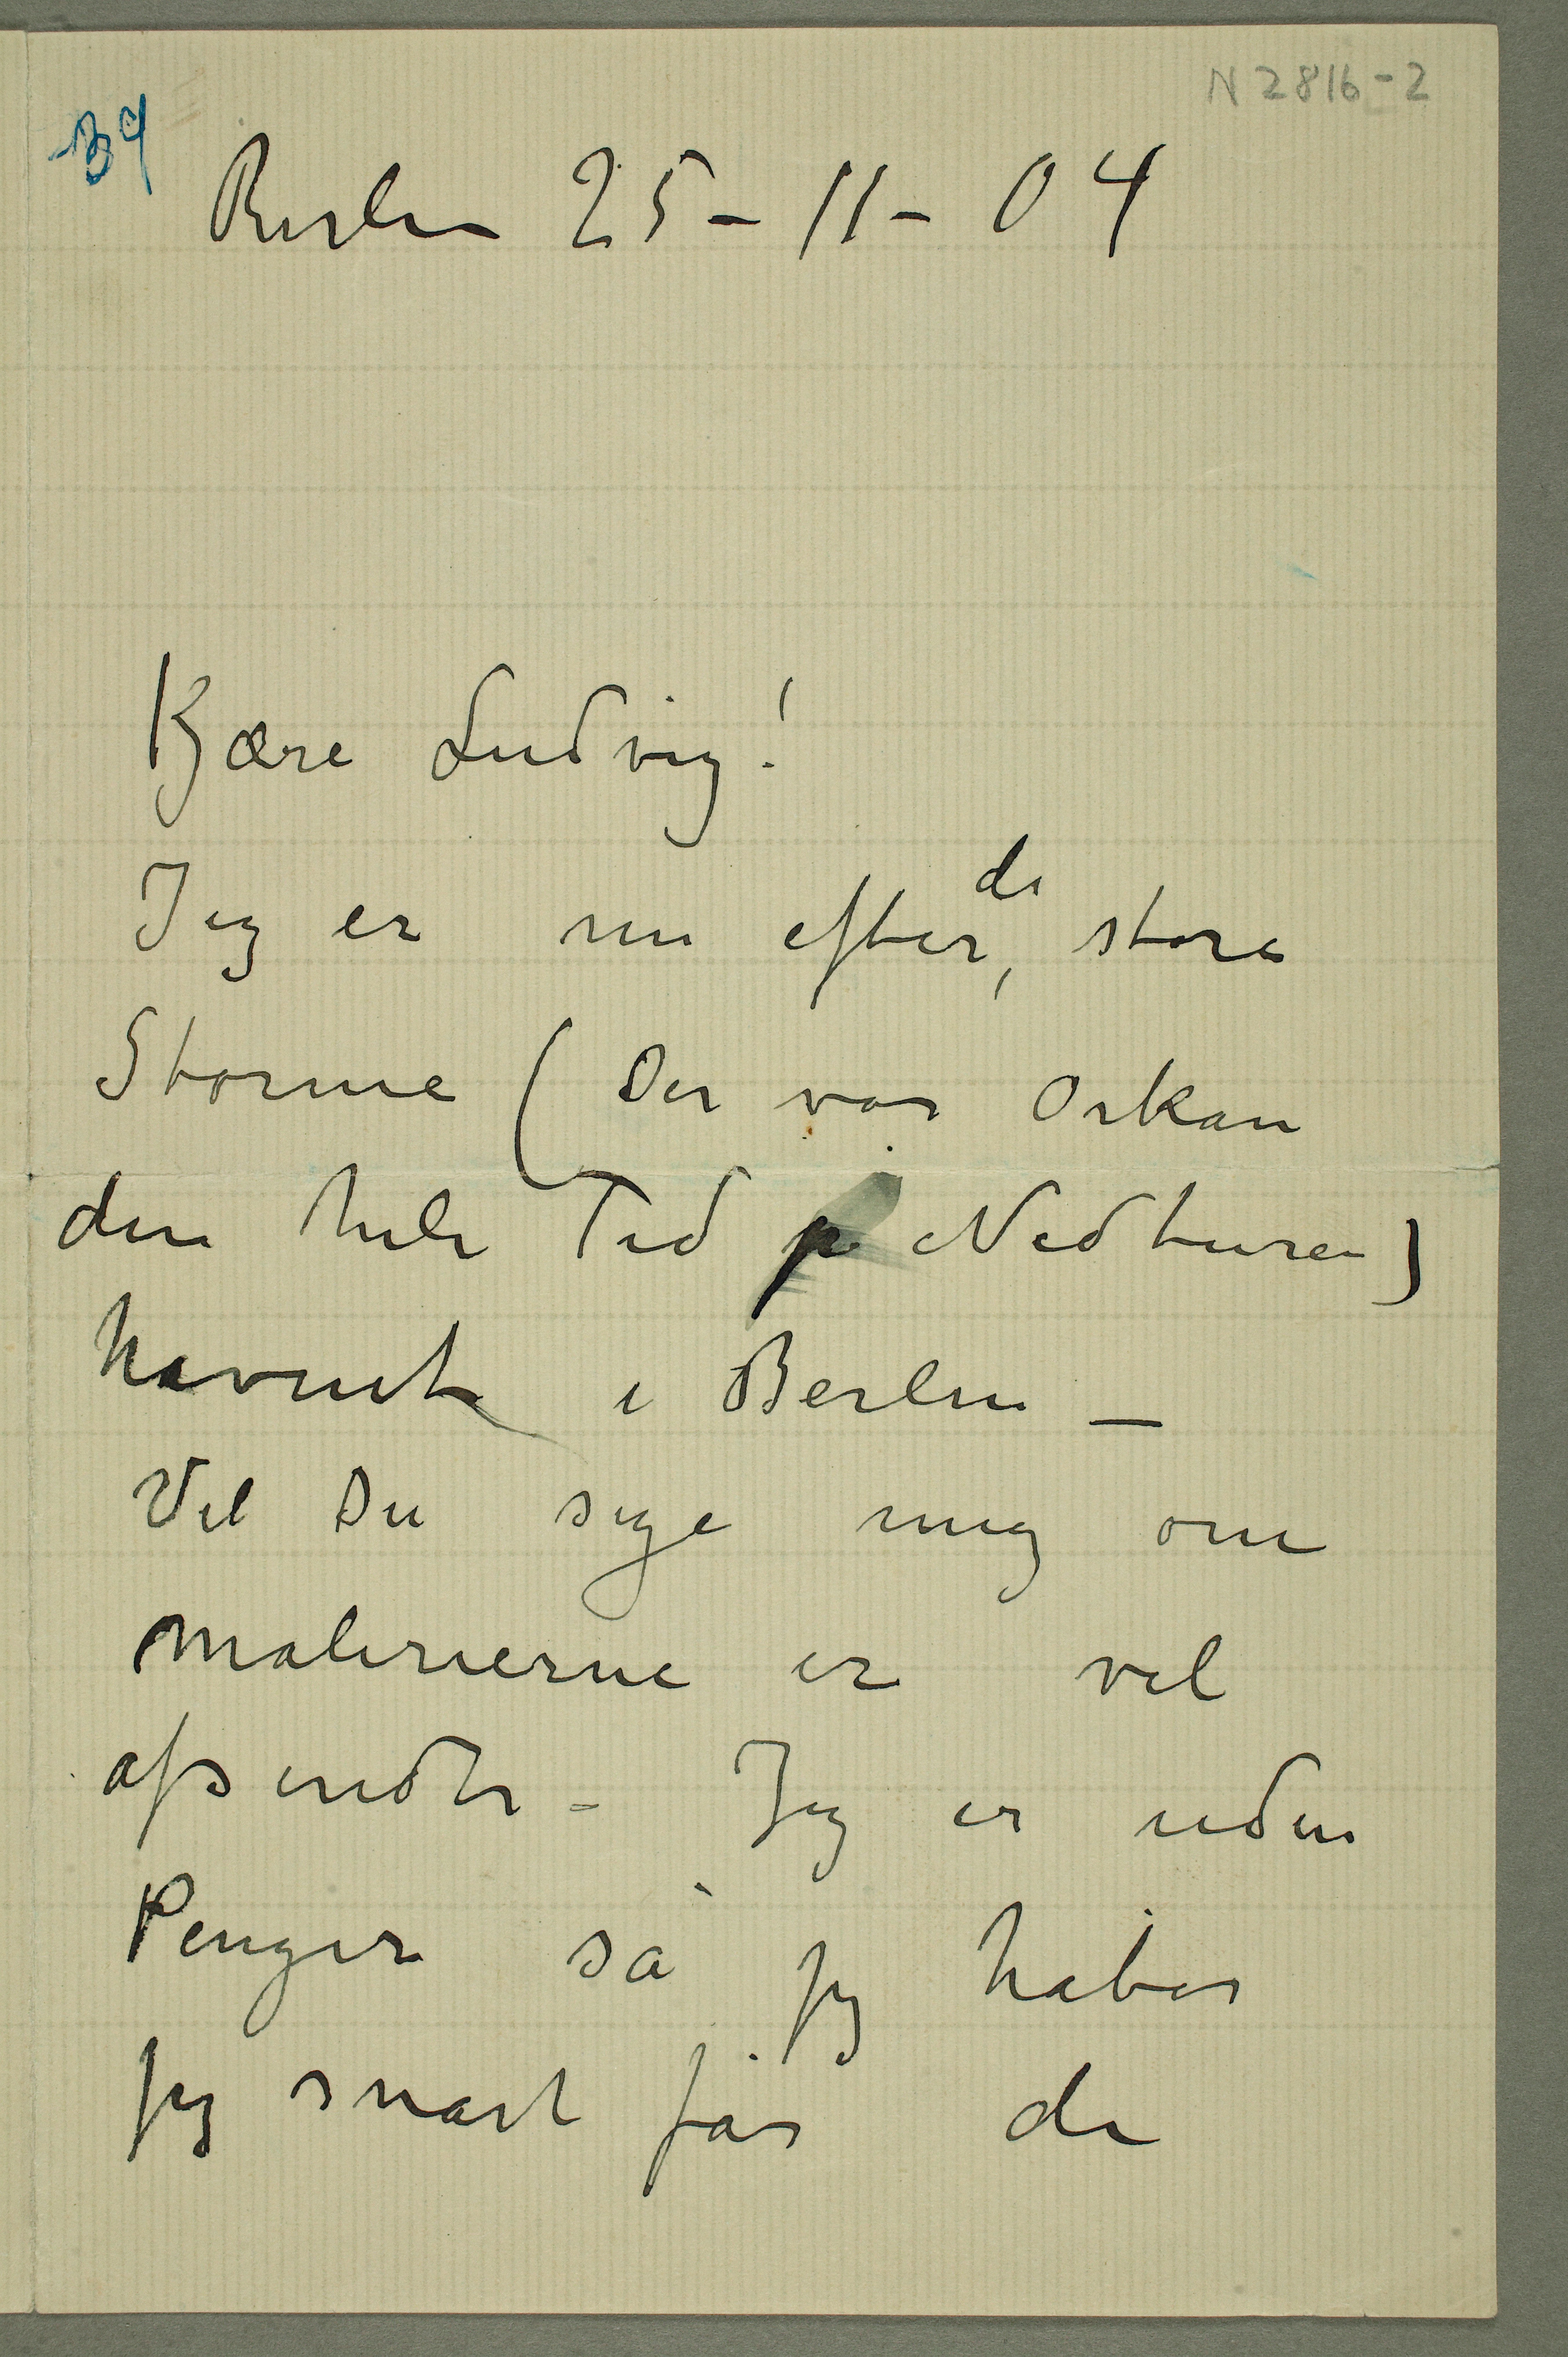 N 2816-2
34
Berlin 25-11-04
Kjære Ludvig!
Jeg er nu efter de store
Storme (Der var Orkan
den hele Tid på Nedturen)
havnet i Berlin –
Vil Du sige mig om
malerierne er vel
afsendte – Jeg er uden
Penger så jeg håber
jeg snart får de